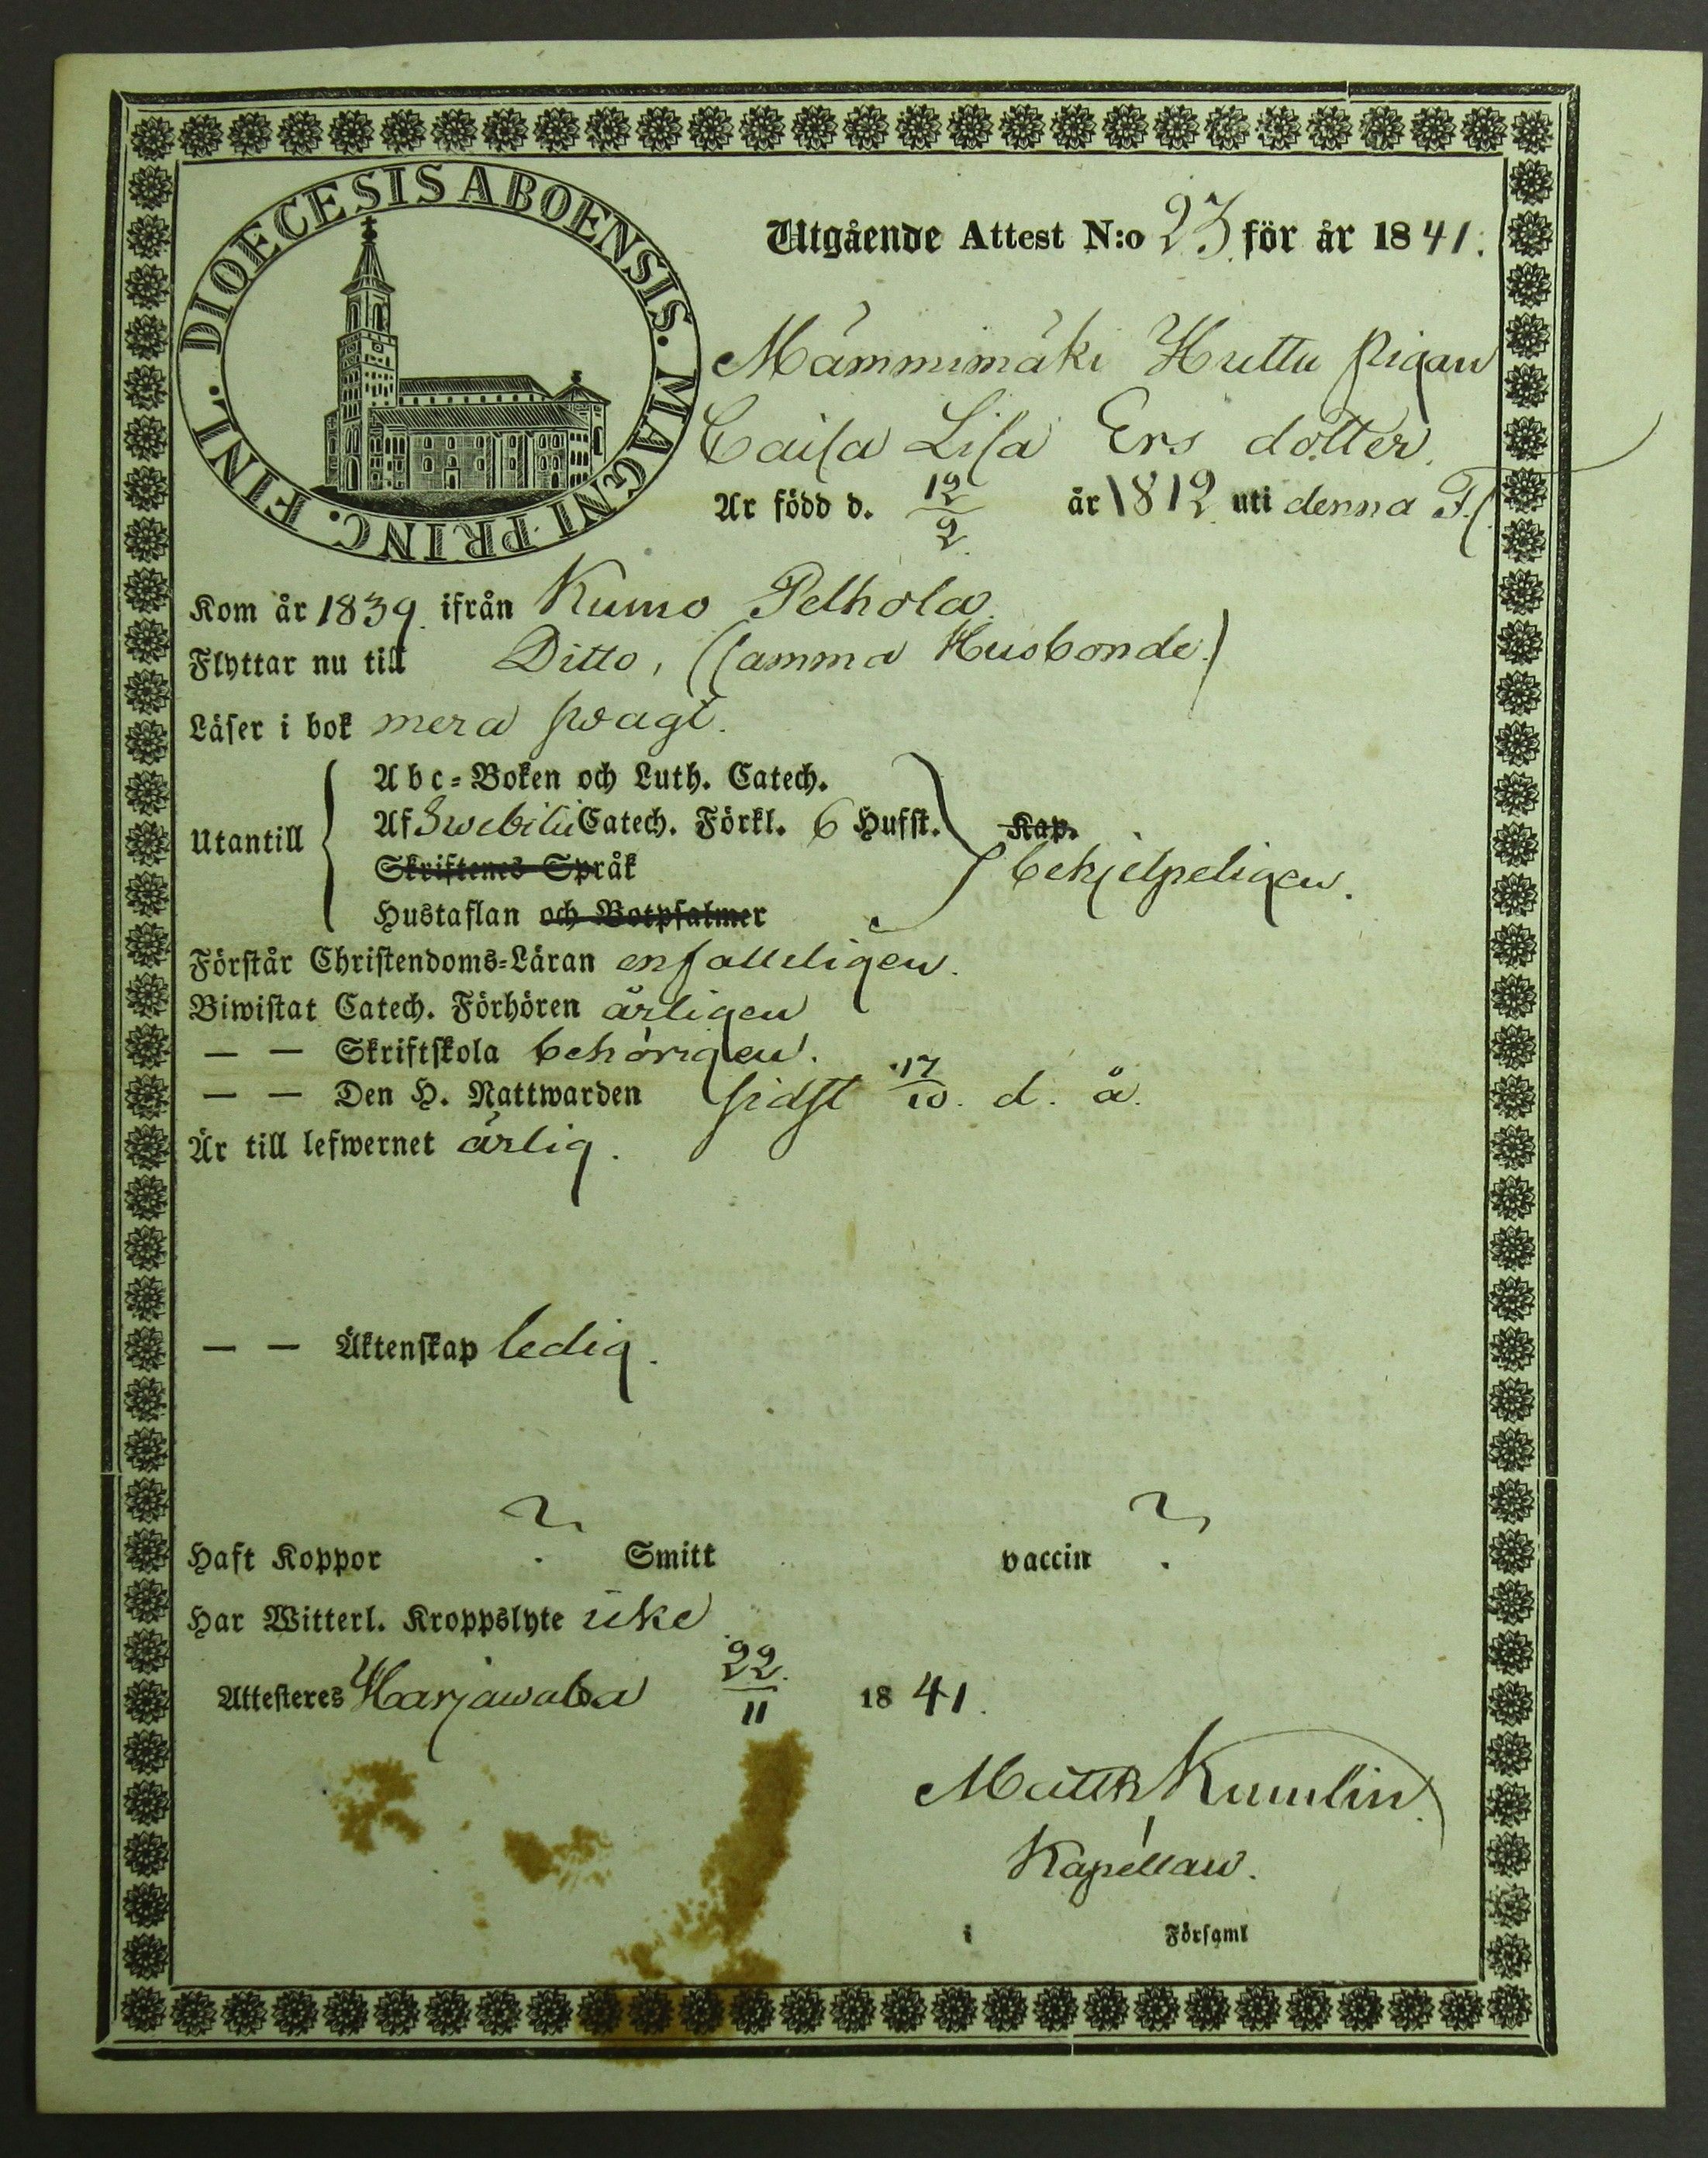 DIOECESIS ABOENSIS. MAGNI PRINC. FINL.
Utgående Attest N:o 23. för år 1841.
Mämmimäki Huttu pigan
Caisa Lisa Ers dotter
Är född d. 12/2. år 1812 uti denna F.
Kom år 1839. ifrån Kumo Pelhola.
Flyttar nu till Ditto, (samma Husbonde)
Läser i bok mera svagt.
Utantill
Abc-Boken och Luth. Catech.
Af Swebilii Catech. Förkl. 6 Hufst. Kap.
Skriftenes Språk
behjelpeligen.
Hustaflan och Botpsalmer
Förstår Christendoms-Läran enfalleligen.
Biwistat Catech. Förhören årligen
— — Skriftskola behörigen.
— — Den H. Nattwarden sidst 17/10. d. å.
Är till lefwernet ärlig.
— — Äktenskap ledig.
Haft Koppor ? Smitt vaccin ?
Har Witterl. Kroppslyte icke
Attesteres Harjawalda 22/11 1841.
Matth Kumlin.
Kapellan.
i Församl